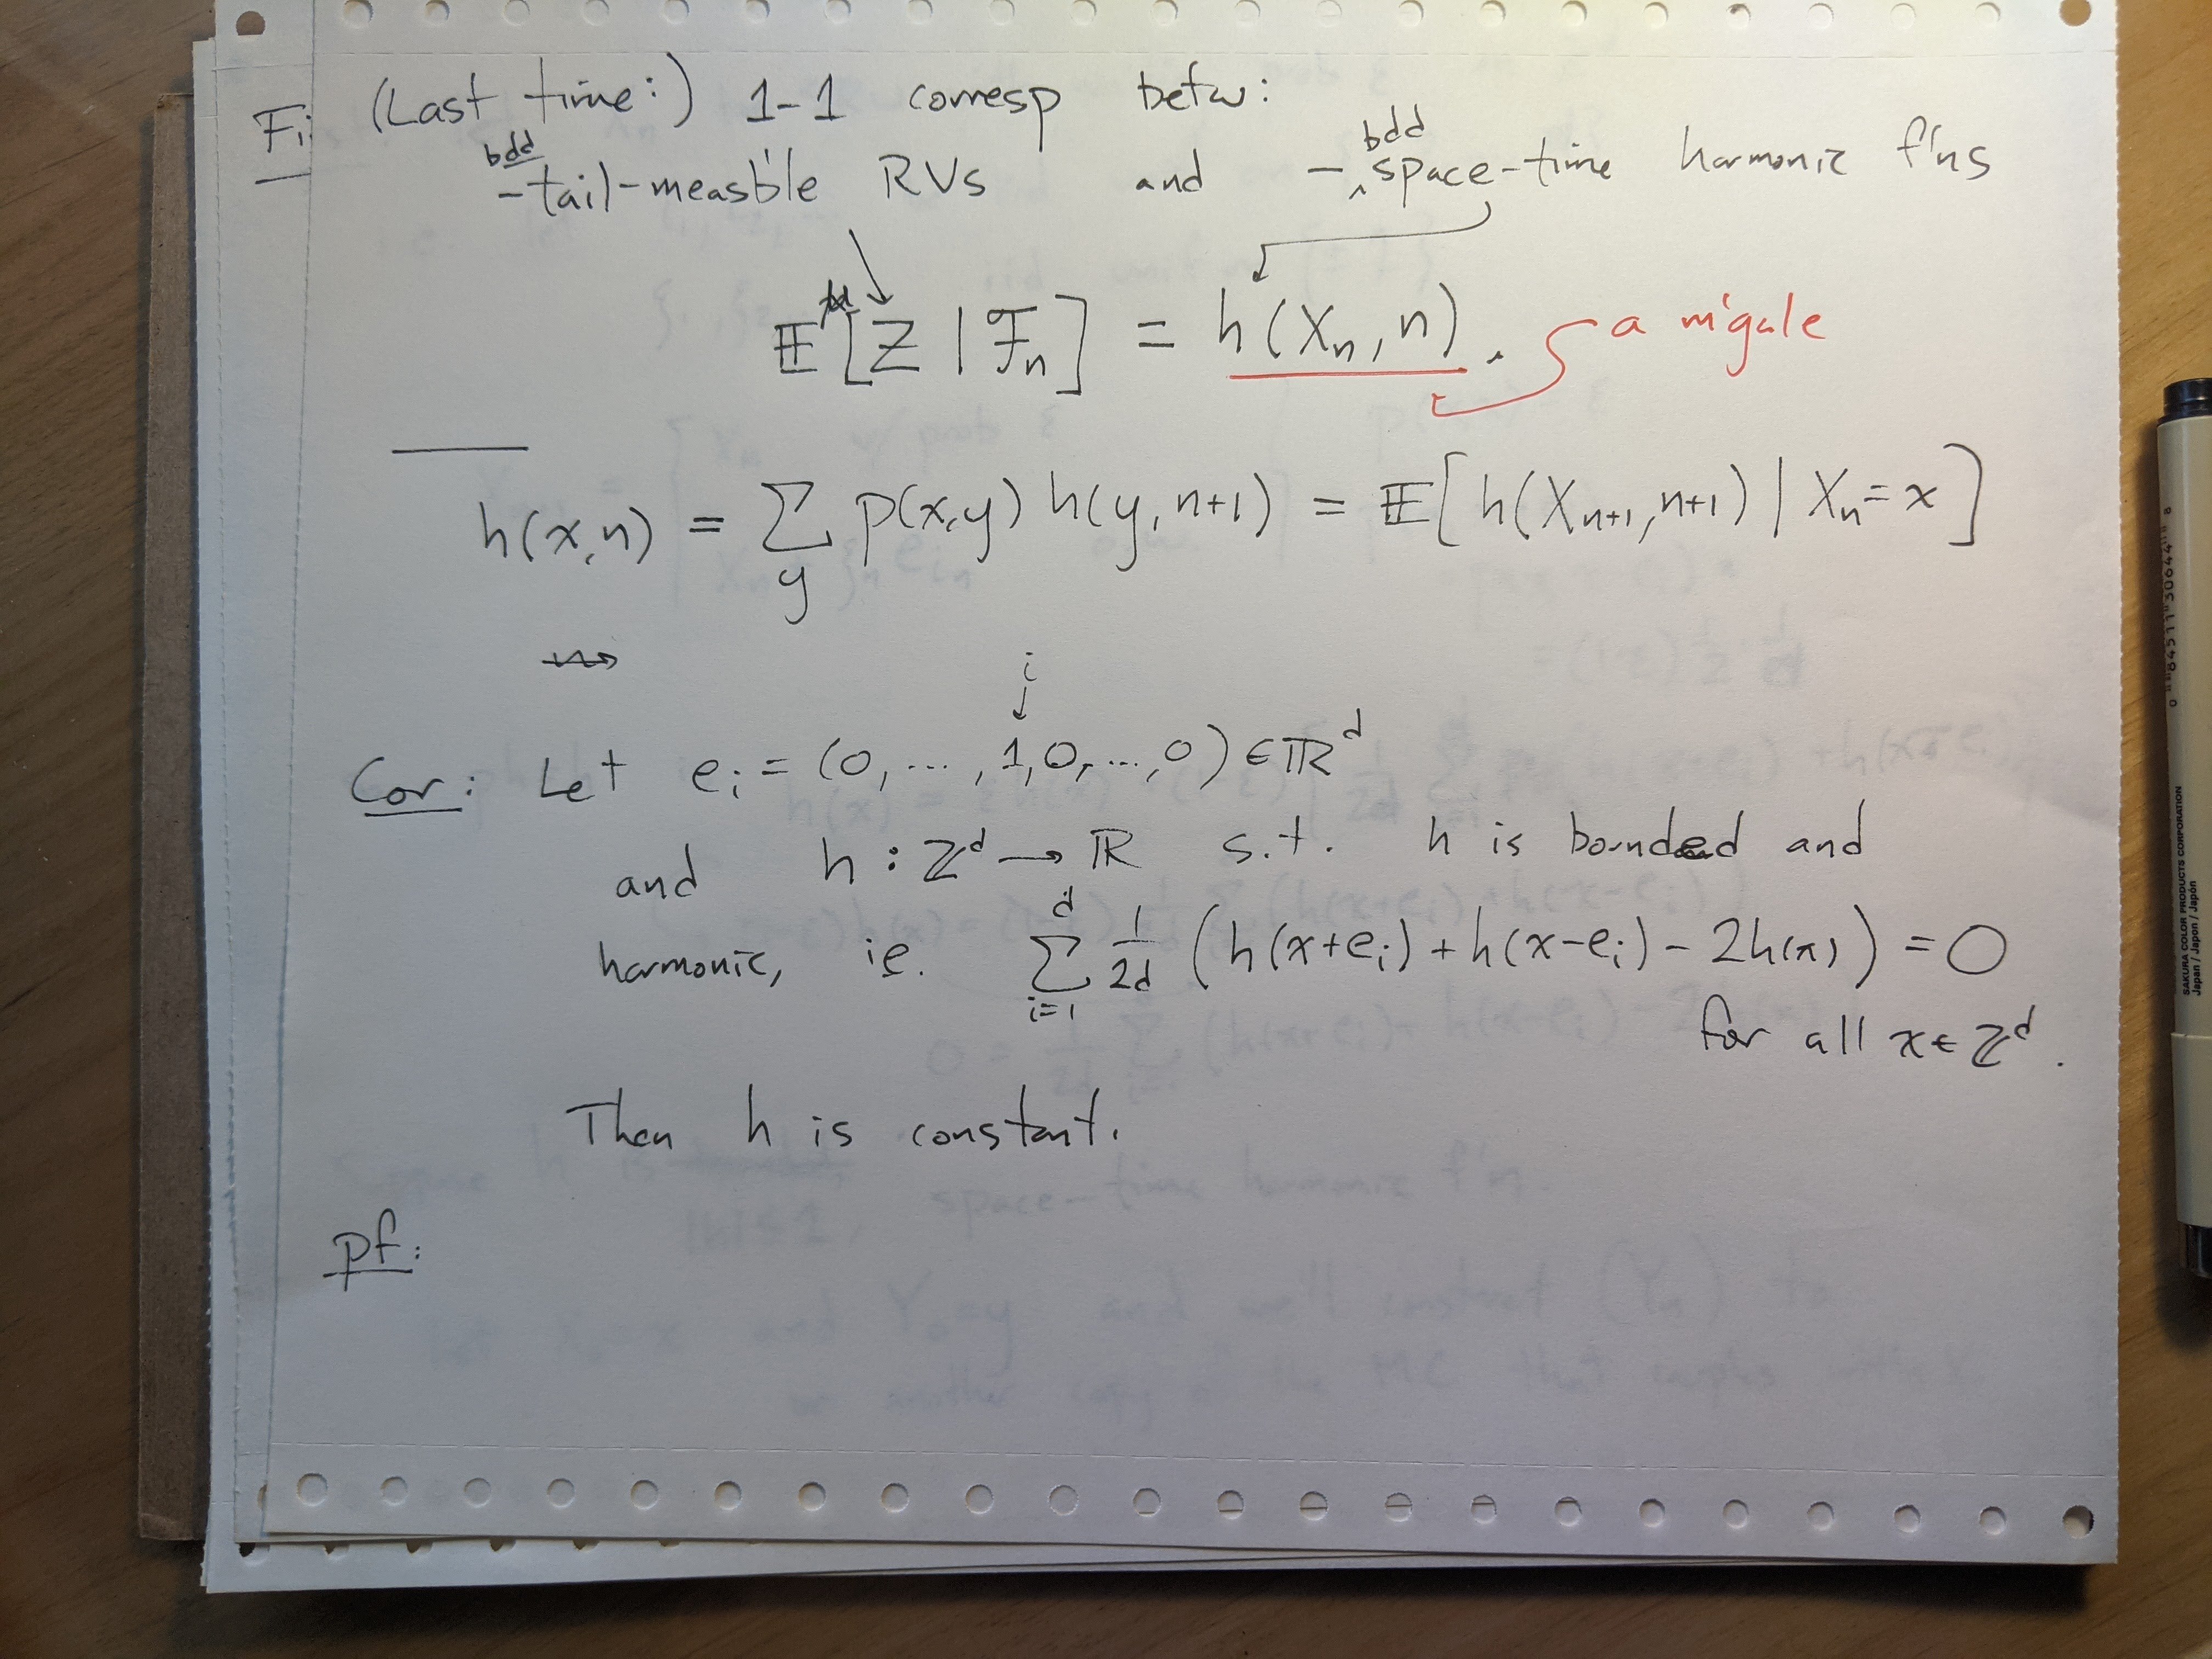 Fi: (Last time:) 1-1 corresp betw:
bdd bdd
- tail-measb'le RVs and - ^ space-time harmonic f'ns
E[Z | F_n] = h(X_n, n). a m'gale
h(x,n) = Σ_y p(x,y) h(y, n+1) = E[h(X_{n+1}, n+1) | X_n = x]
i
↓
Cor: Let e_i = (0, ..., 1, 0, ..., 0) ∈ ℝ^d
and h : ℤ^d → ℝ s.t. h is bounded and
harmonic, ie. Σ_{i=1}^d 1/2d (h(x+e_i) + h(x-e_i) - 2h(x)) = 0
for all x ∈ ℤ^d.
Then h is constant.
pf:
SAKURA COLOR PRODUCTS CORPORATION
Japan / Japon / Japón